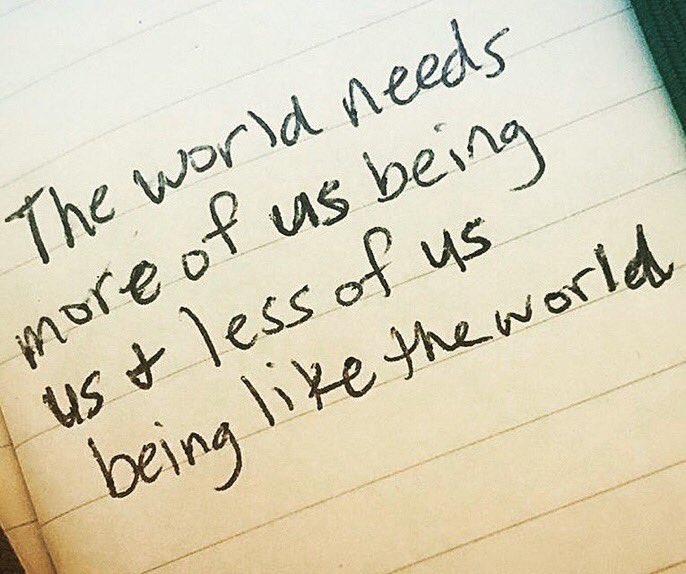 The world needs
more of us being
us & less of us
being like the world